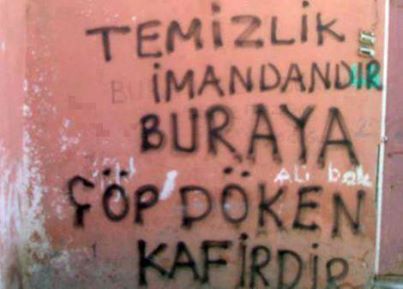 TEMİZLİK
İMANDANDIR
BURAYA
Ali bak
ÇÖP DÖKEN
KAFİRDİR